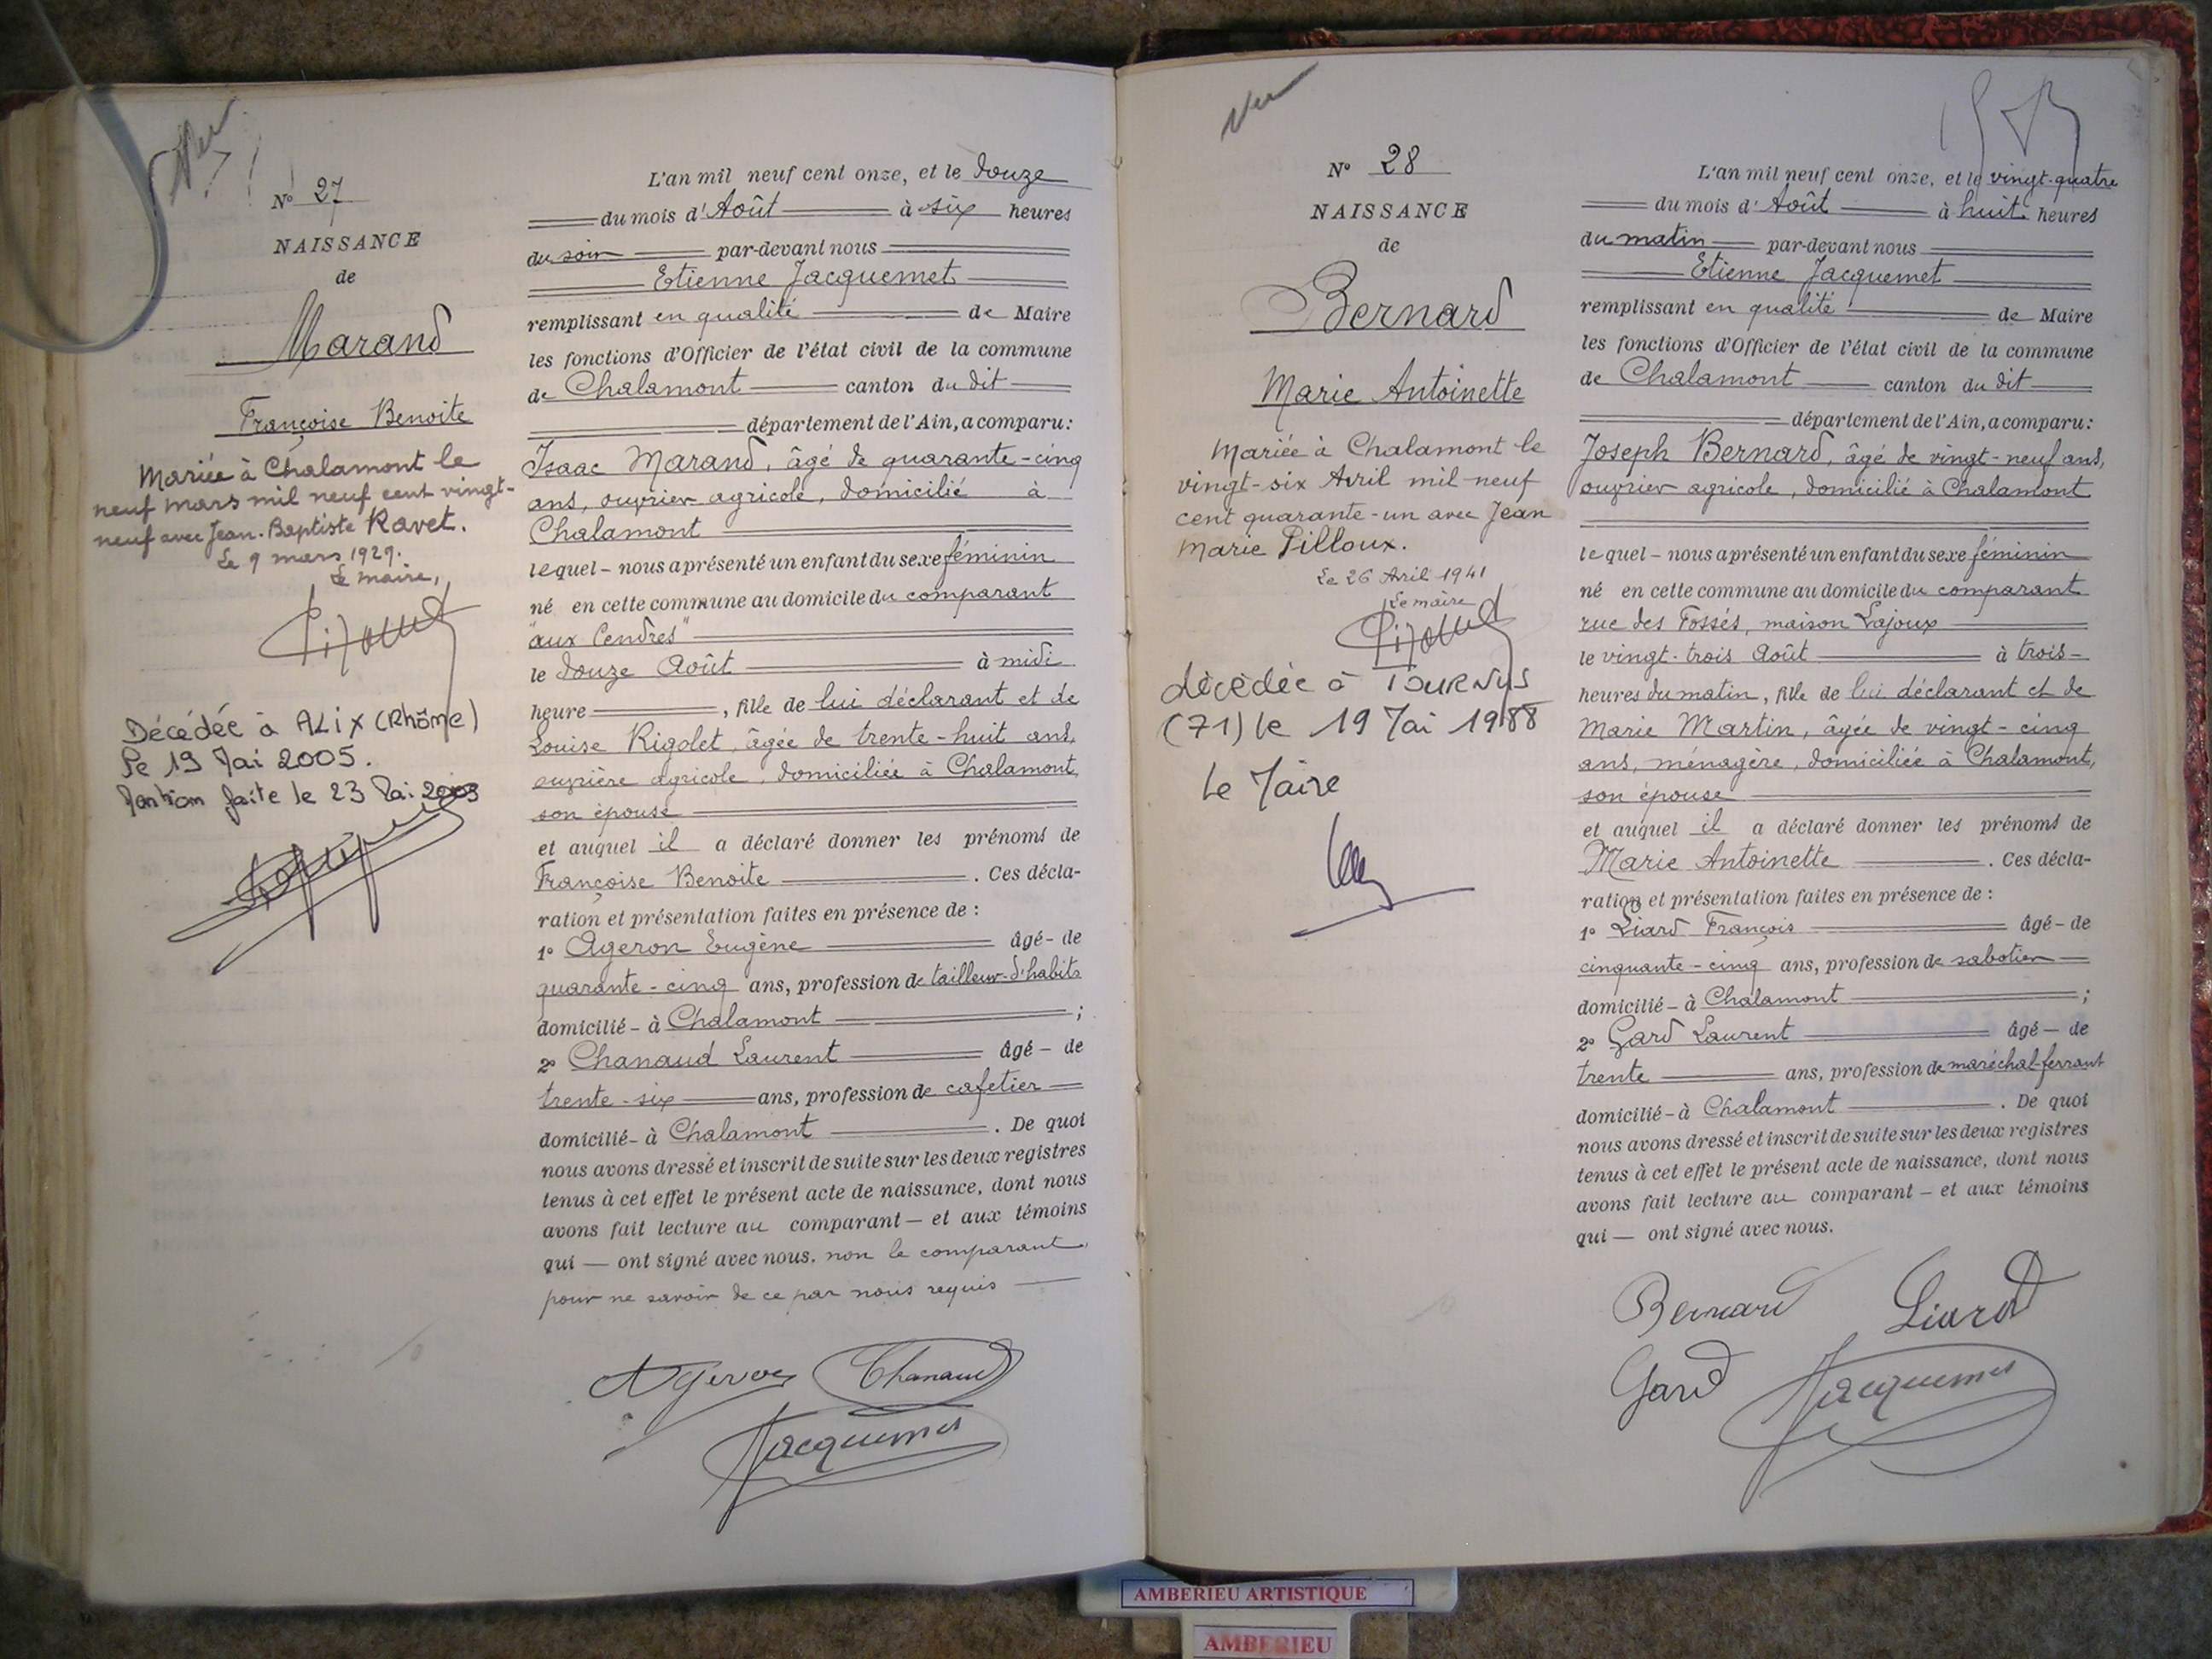 Vu
N° 27
NAISSANCE
de
Marand
Françoise Benoite
Mariée à Chalamont le
neuf mars mil neuf cent vingt-
neuf avec Jean-Baptiste Ravet.
Le 9 mars 1929.
Le maire,
Décédée à ALIX (Rhône)
le 19 Mai 2005.
Mention faite le 23 Mai
L'an mil neuf cent onze, et le douze
du mois d'Août à six heures
du soir par-devant nous
Etienne Jacquemet
remplissant en qualité de Maire
les fonctions d'Officier de l'état civil de la commune
de Chalamont canton du dit
département de l'Ain, a comparu:
Isaac Marand, âgé de quarante-cinq
ans, ouvrier agricole, domicilié à
Chalamont
lequel - nous a présenté un enfant du sexe féminin
né en cette commune au domicile du comparant
"aux Cendres"
le douze Août à midi
heure , fille de lui déclarant et de
Louise Rigolet, âgée de trente-huit ans,
ouvrière agricole, domiciliée à Chalamont,
son épouse
et auquel il a déclaré donner les prénoms de
Françoise Benoite . Ces décla-
ration et présentation faites en présence de :
1° Ageron Eugène âgé - de
quarante-cinq ans, profession de tailleur-d'habits
domicilié - à Chalamont ;
2° Chanaud Laurent âgé - de
trente-six ans, profession de cafetier
domicilié - à Chalamont . De quoi
nous avons dressé et inscrit de suite sur les deux registres
tenus à cet effet le présent acte de naissance, dont nous
avons fait lecture au comparant - et aux témoins
qui - ont signé avec nous. non le comparant
pour ne savoir de ce par nous requis
Ageron Chanaud
Jacquemet
Vu
N° 28
NAISSANCE
de
Bernard
Marie Antoinette
Mariée à Chalamont le
vingt-six Avril mil neuf
cent quarante-un avec Jean
Marie Pilloux.
Le 26 Avril 1941
Le maire
décèdée à TOURNUS
(71) le 19 Mai 1988
Le Maire
L'an mil neuf cent onze, et le vingt-quatre
du mois d'Août à huit heures
du matin par-devant nous
Etienne Jacquemet
remplissant en qualité de Maire
les fonctions d'Officier de l'état civil de la commune
de Chalamont canton du dit
département de l'Ain, a comparu:
Joseph Bernard, âgé de vingt-neuf ans,
ouvrier agricole, domicilié à Chalamont
lequel - nous a présenté un enfant du sexe féminin
né en cette commune au domicile du comparant
rue des Fossés, maison Lajoux
le vingt-trois Août à trois -
heures du matin, fille de lui déclarant et de
Marie Martin, âgée de vingt-cinq
ans, ménagère, domiciliée à Chalamont,
son épouse
et auquel il a déclaré donner les prénoms de
Marie Antoinette . Ces décla-
ration et présentation faites en présence de :
1° Liard François âgé - de
cinquante-cinq ans, profession de sabotier
domicilié - à Chalamont ;
2° Gard Laurent âgé - de
trente ans, profession de maréchal-ferrant
domicilié - à Chalamont . De quoi
nous avons dressé et inscrit de suite sur les deux registres
tenus à cet effet le présent acte de naissance, dont nous
avons fait lecture au comparant - et aux témoins
qui - ont signé avec nous.
Bernard Liard
Gard Jacquemet
AMBERIEU ARTISTIQUE
AMBERIEU